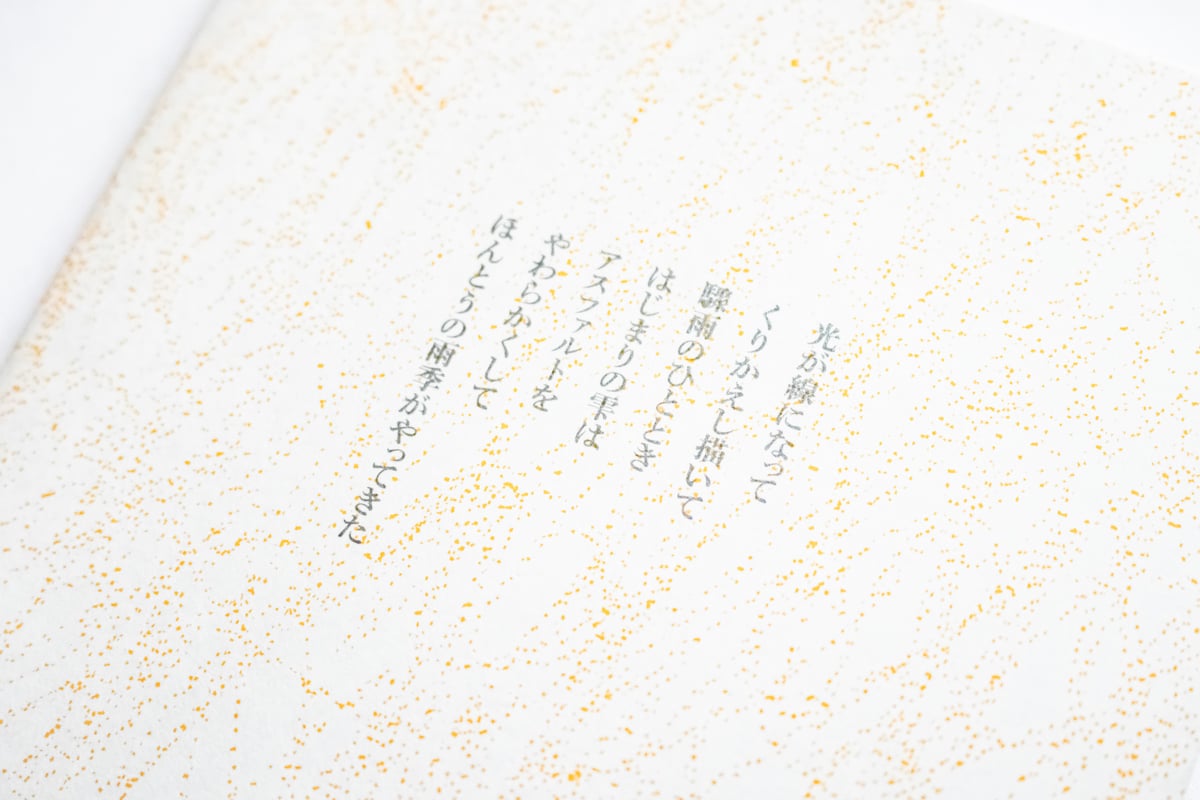 光が線になって
くりかえし描いて
驟雨のひととき
はじまりの雫は
アスファルトを
やわらかくして
ほんとうの雨季がやってきた